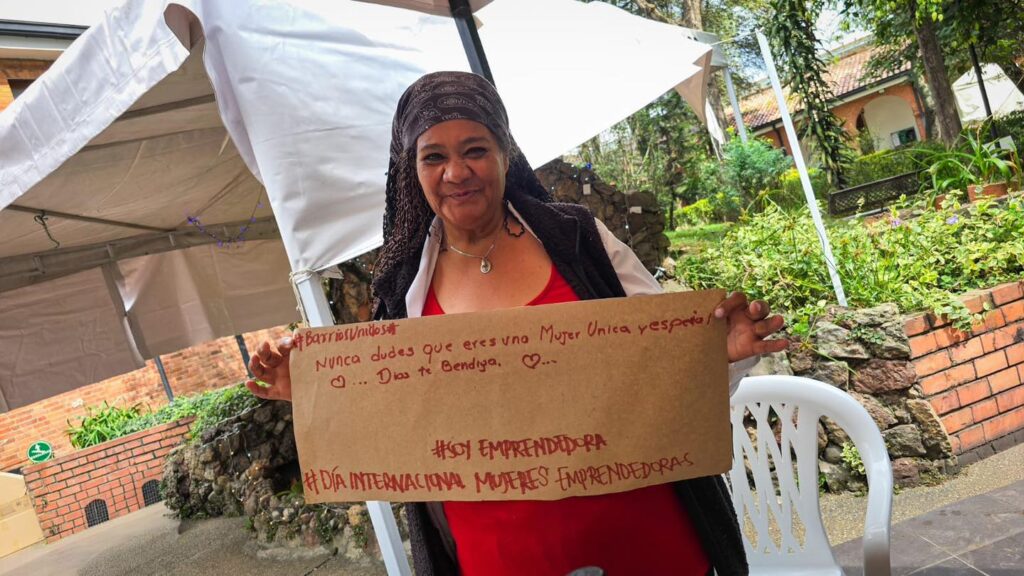 #BarriosUnidos#
Nunca dudes que eres una Mujer Unica y especial
♡... Dios te Bendiga. ♡...
#SOY EMPRENDEDORA
#DÍA INTERNACIONAL MUJERES EMPRENDEDORAS